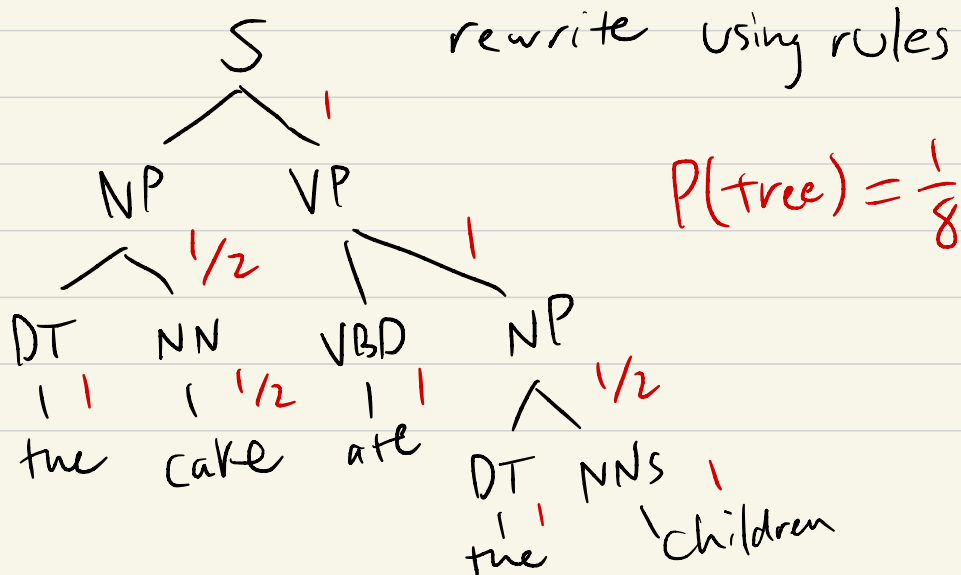 S rewrite using rules
1
NP VP P(tree) = 1/8
1/2 1
DT NN VBD NP
1 1/2 1 1/2
the cake ate
DT NNS 1
1
the children